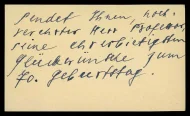 sendet Ihnen, hoch-
verehrter Herr Professor,
seine ehrerbietigsten
Glückwünsche zum
70. Geburtstag.